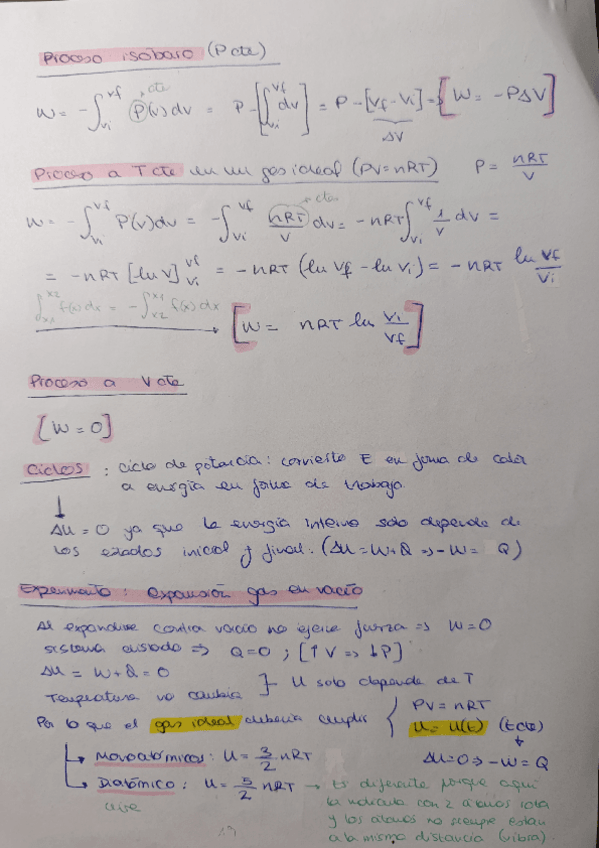 Proceso isobaro (P cte)
cte
W = - ∫vi^vf P(v) dv = P - [∫vi^vf dv] = P - [Vf - Vi] => [W = - PΔV]
ΔV
Proceso a T cte en un gas ideal (PV = nRT) P = nRT/V
ctes
W = - ∫vi^vf P(v) dv = - ∫vi^vf nRT/V dv = - nRT ∫vi^vf 1/V dv =
= - nRT [ln V]vi^vf = - nRT (ln Vf - ln Vi) = - nRT ln Vf/Vi
∫x1^x2 f(x) dx = - ∫x2^x1 f(x) dx
[W = nRT ln Vi/Vf]
Proceso a V cte
[W = 0]
Ciclos : ciclo de potencia: convierte E en forma de calor
a energía en forma de trabajo.
ΔU = 0 ya que la energía interna solo depende de
los estados inicial y final. (ΔU = W + Q => - W = Q)
Experimento: expansión gas en vacío
Al expandirse contra vacío no ejerce fuerza => W = 0
sistema aislado => Q = 0 ; [↑V => ↓P]
ΔU = W + Q = 0
Temperatura no cambia } U solo depende de T
Por lo que el gas ideal debería cumplir { PV = nRT
U = U(t) (t cte)
ΔU = 0 => - W = Q
Monoatómicos: U = 3/2 nRT
Diatómico: U = 5/2 nRT → Es diferente porque aquí
la molécula con 2 átomos rota
y los átomos no siempre están
a la misma distancia (vibra).